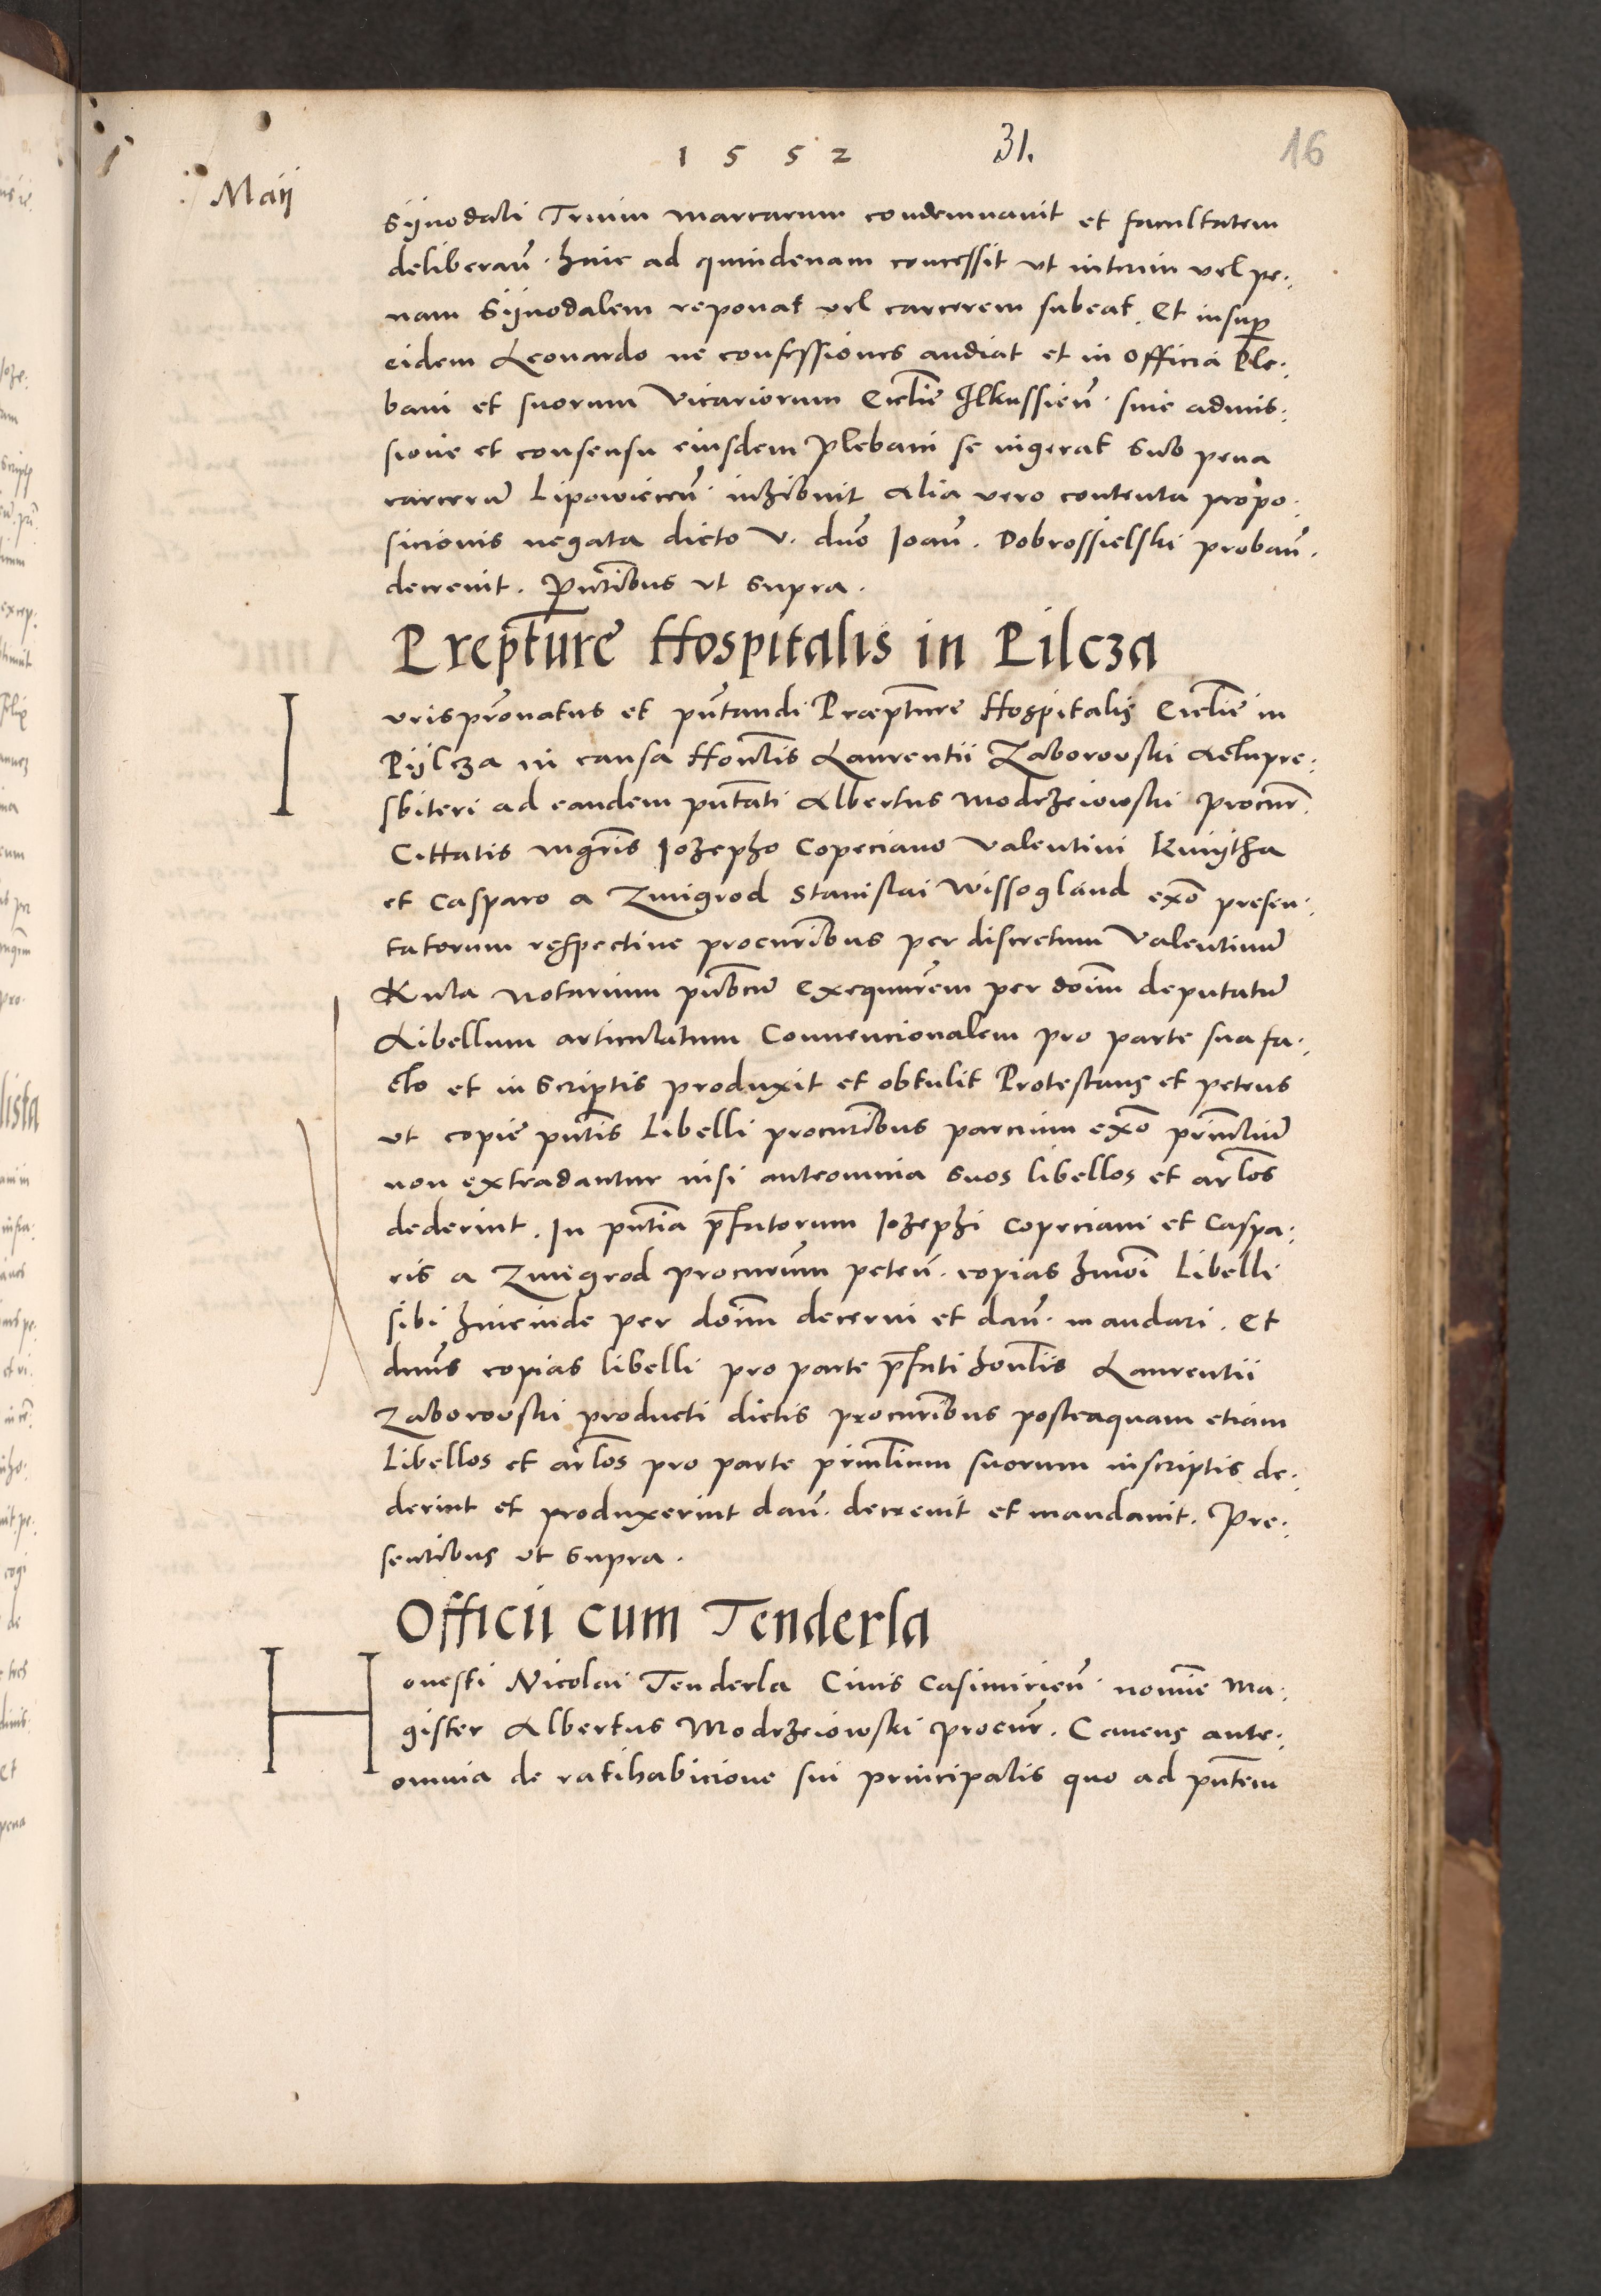 1552 31. 16
Maij
Sijnodali Trium marcarum condemnauit et facultatem
deliberan̄. huic ad quindenam concessit ut interim vel pe:
nam Sijnodalem reponat vel carcerem subeat. Et insup
eidem Leonardo ne confessiones audiat et in officia Ple:
bani et suorum Vicariorum Ecclie Ilkussien̄. sine admis:
sione et consensu eiusdem Plebani se ingerat Sub pena
carcerū Lipowiecen̄. inhibuit Alia vero contenta propo:
sicionis negata dicto V. dn̄o Joan̄. Dobrossielski proban̄.
decreuit. Pn̄tibus ut supra.
Prept̄ure Hospitalis in Pilcza
Iurispr̄onatus et pn̄tandi Præpt̄ure Hospitalis Ecclie in
Pijlcza in causa Hon̄lis Laurentii Zaborovski Actupre:
sbiteri ad eandem pn̄tati Albertus Modrzeiowski Procur̄.
Citt̄atis mgr̄is Jozepho Copeciano Valentini Kmijtha
et Casparo a Zmigrod Stanislai Wissogland ex̄o presen:
tatorum respective procur̄ibus per discretum Valentinū
Kula notarium pub̄cū Exequur̄em per doīm deputatū
Libellum articulatum Conuencionalem pro parte sua fa:
cto et in Scriptis produxit et obtulit Protestans et petens
ut copie pn̄tis Libelli procur̄ibus parcium ex̄o prīnc̄liū
non extradantur nisi anteomnia suos libellos et ar̄los
dederint. In pn̄tia pr̄fatorum Jozephi Copeciani et Caspa:
ris a Zmigrod procur̄um peten̄. copias hm̄oi Libelli
sibi hincinde per doīm decerni et dan̄. mandari. Et
dn̄us copias libelli pro parte pr̄fati hon̄lis Laurentii
Zaborovski producti dictis procur̄ibus posteaquam etiam
Libellos et ar̄los pro parte prīnc̄lium suorum in scriptis de:
derint et produxerint dan̄. decreuit et mandauit. Pre:
sentibus ut supra.
Officii cum Tenderla
Honesti Nicolai Tenderla Ciuis Casimirien̄. nomīe Ma:
gister Albertus Modrzeiowski procur̄. Cauens ante:
omnia de ratihabicione sui principalis quo ad pn̄tem